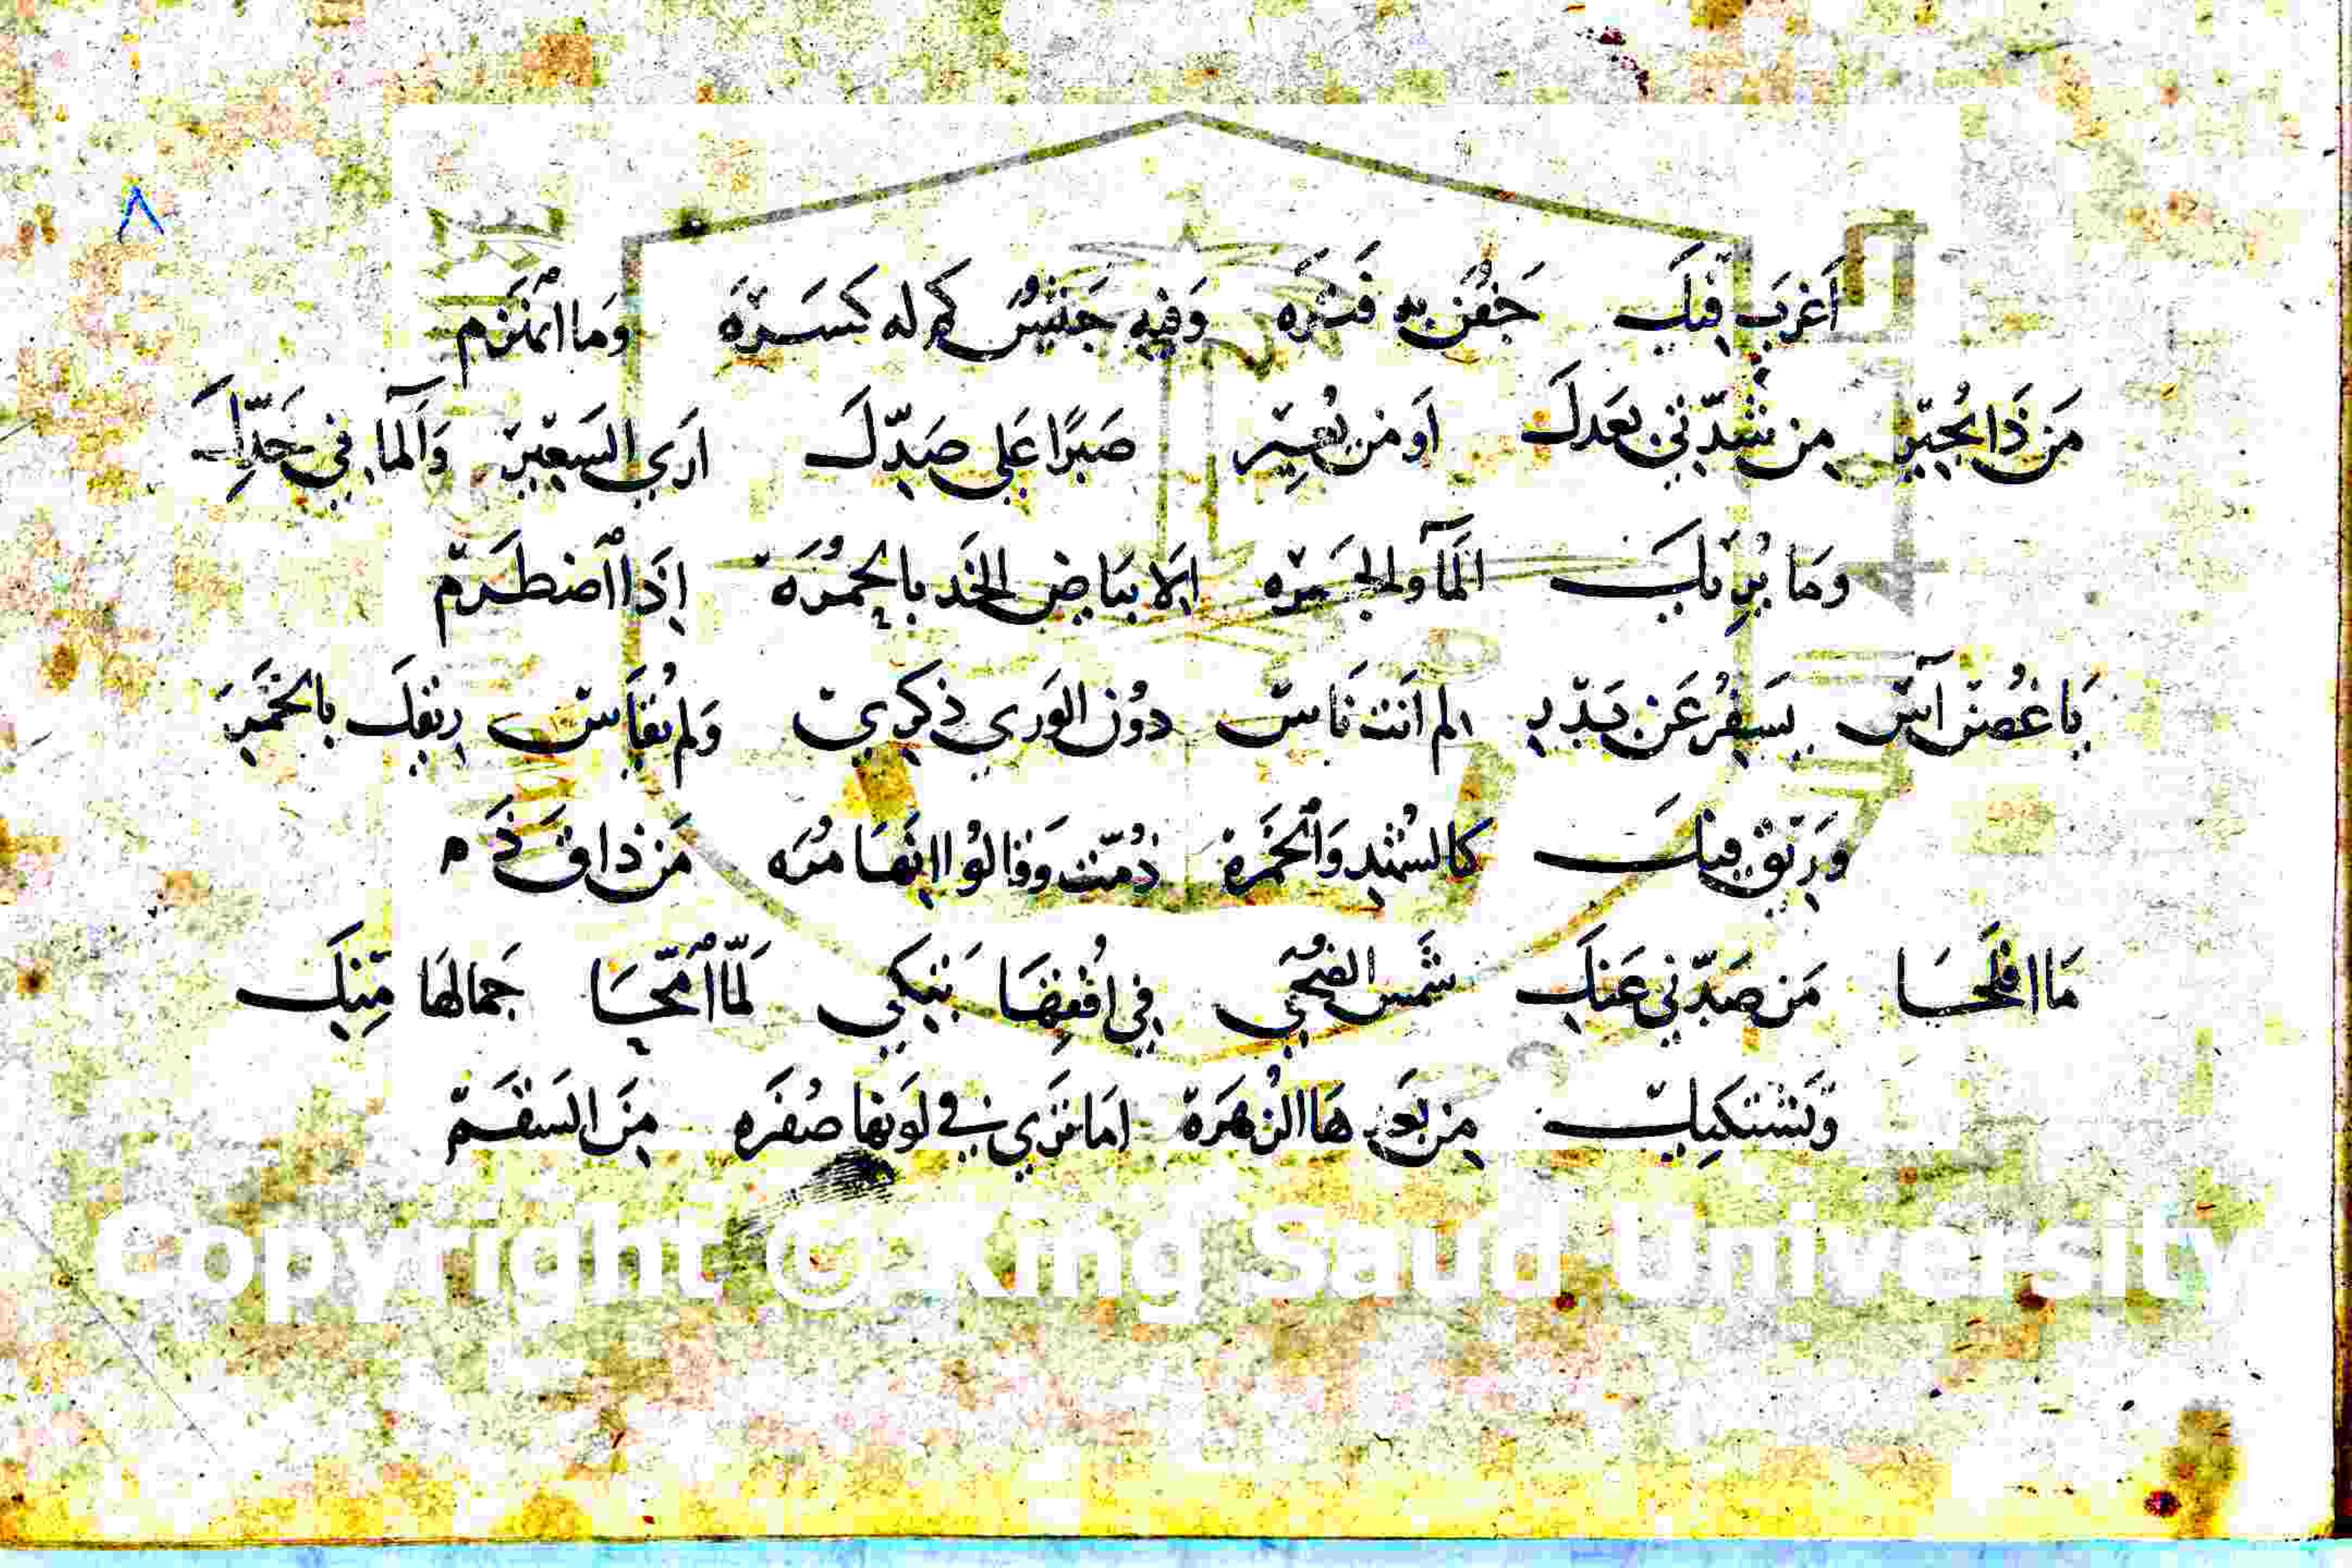 ٨
اَغرَب فِيكَ جَفنُ به فَترَه وَفيهِ جَيشُ كم له كَسرَة وَما انهَزم
مَن ذَا يُجير مِن شدّتي بَعدكَ اَو مَن يُعير صَبرًا عَلى صَدّكَ ارَي السَعير وَالمآ في خَدّكَ
وَما يُريكَ المآ والجَمره الا بيَاض الخَد بالحمُرَة اِذا اضطَرم
يَا غُصن آس يسفِرُ عَن بَدر لم اَنت نَاس دوُن الوَري ذكري وَلم يُقاس ريقك بالخَمر
وَريق فيك كالشُهدِ وَالخَمرة ذُمّت وَقالوُا انهَا مُرَه مَن ذاق ذَم
مَا افلَحَا مَن صَدّني عَنك شَمس الضُحَي في اُفقِهَا تَبكي لَمّا امّحَا جَمالهَا مِنك
وَتَشتَكيك مِن بَعدهَا الزُهرَة امَا تَرَي في لَونها صُفرَه مِنَ السَقَم
Copyright © King Saud University